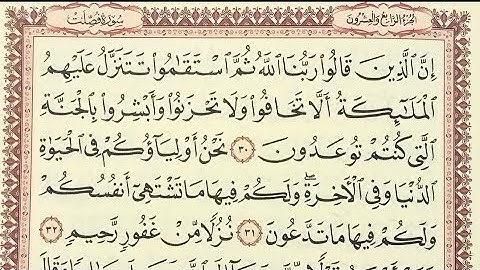 سورة فصلت
الجزء الرابع والعشرون
إِنَّ ٱلَّذِينَ قَالُوا۟ رَبُّنَا ٱللَّهُ ثُمَّ ٱسْتَقَٰمُوا۟ تَتَنَزَّلُ عَلَيْهِمُ
ٱلْمَلَٰٓئِكَةُ أَلَّا تَخَافُوا۟ وَلَا تَحْزَنُوا۟ وَأَبْشِرُوا۟ بِٱلْجَنَّةِ
ٱلَّتِى كُنتُمْ تُوعَدُونَ ٣٠ نَحْنُ أَوْلِيَآؤُكُمْ فِى ٱلْحَيَوٰةِ
ٱلدُّنْيَا وَفِى ٱلْءَاخِرَةِ ۖ وَلَكُمْ فِيهَا مَا تَشْتَهِىٓ أَنفُسُكُمْ
وَلَكُمْ فِيهَا مَا تَدَّعُونَ ٣١ نُزُلًا مِّنْ غَفُورٍ رَّحِيمٍ ٣٢